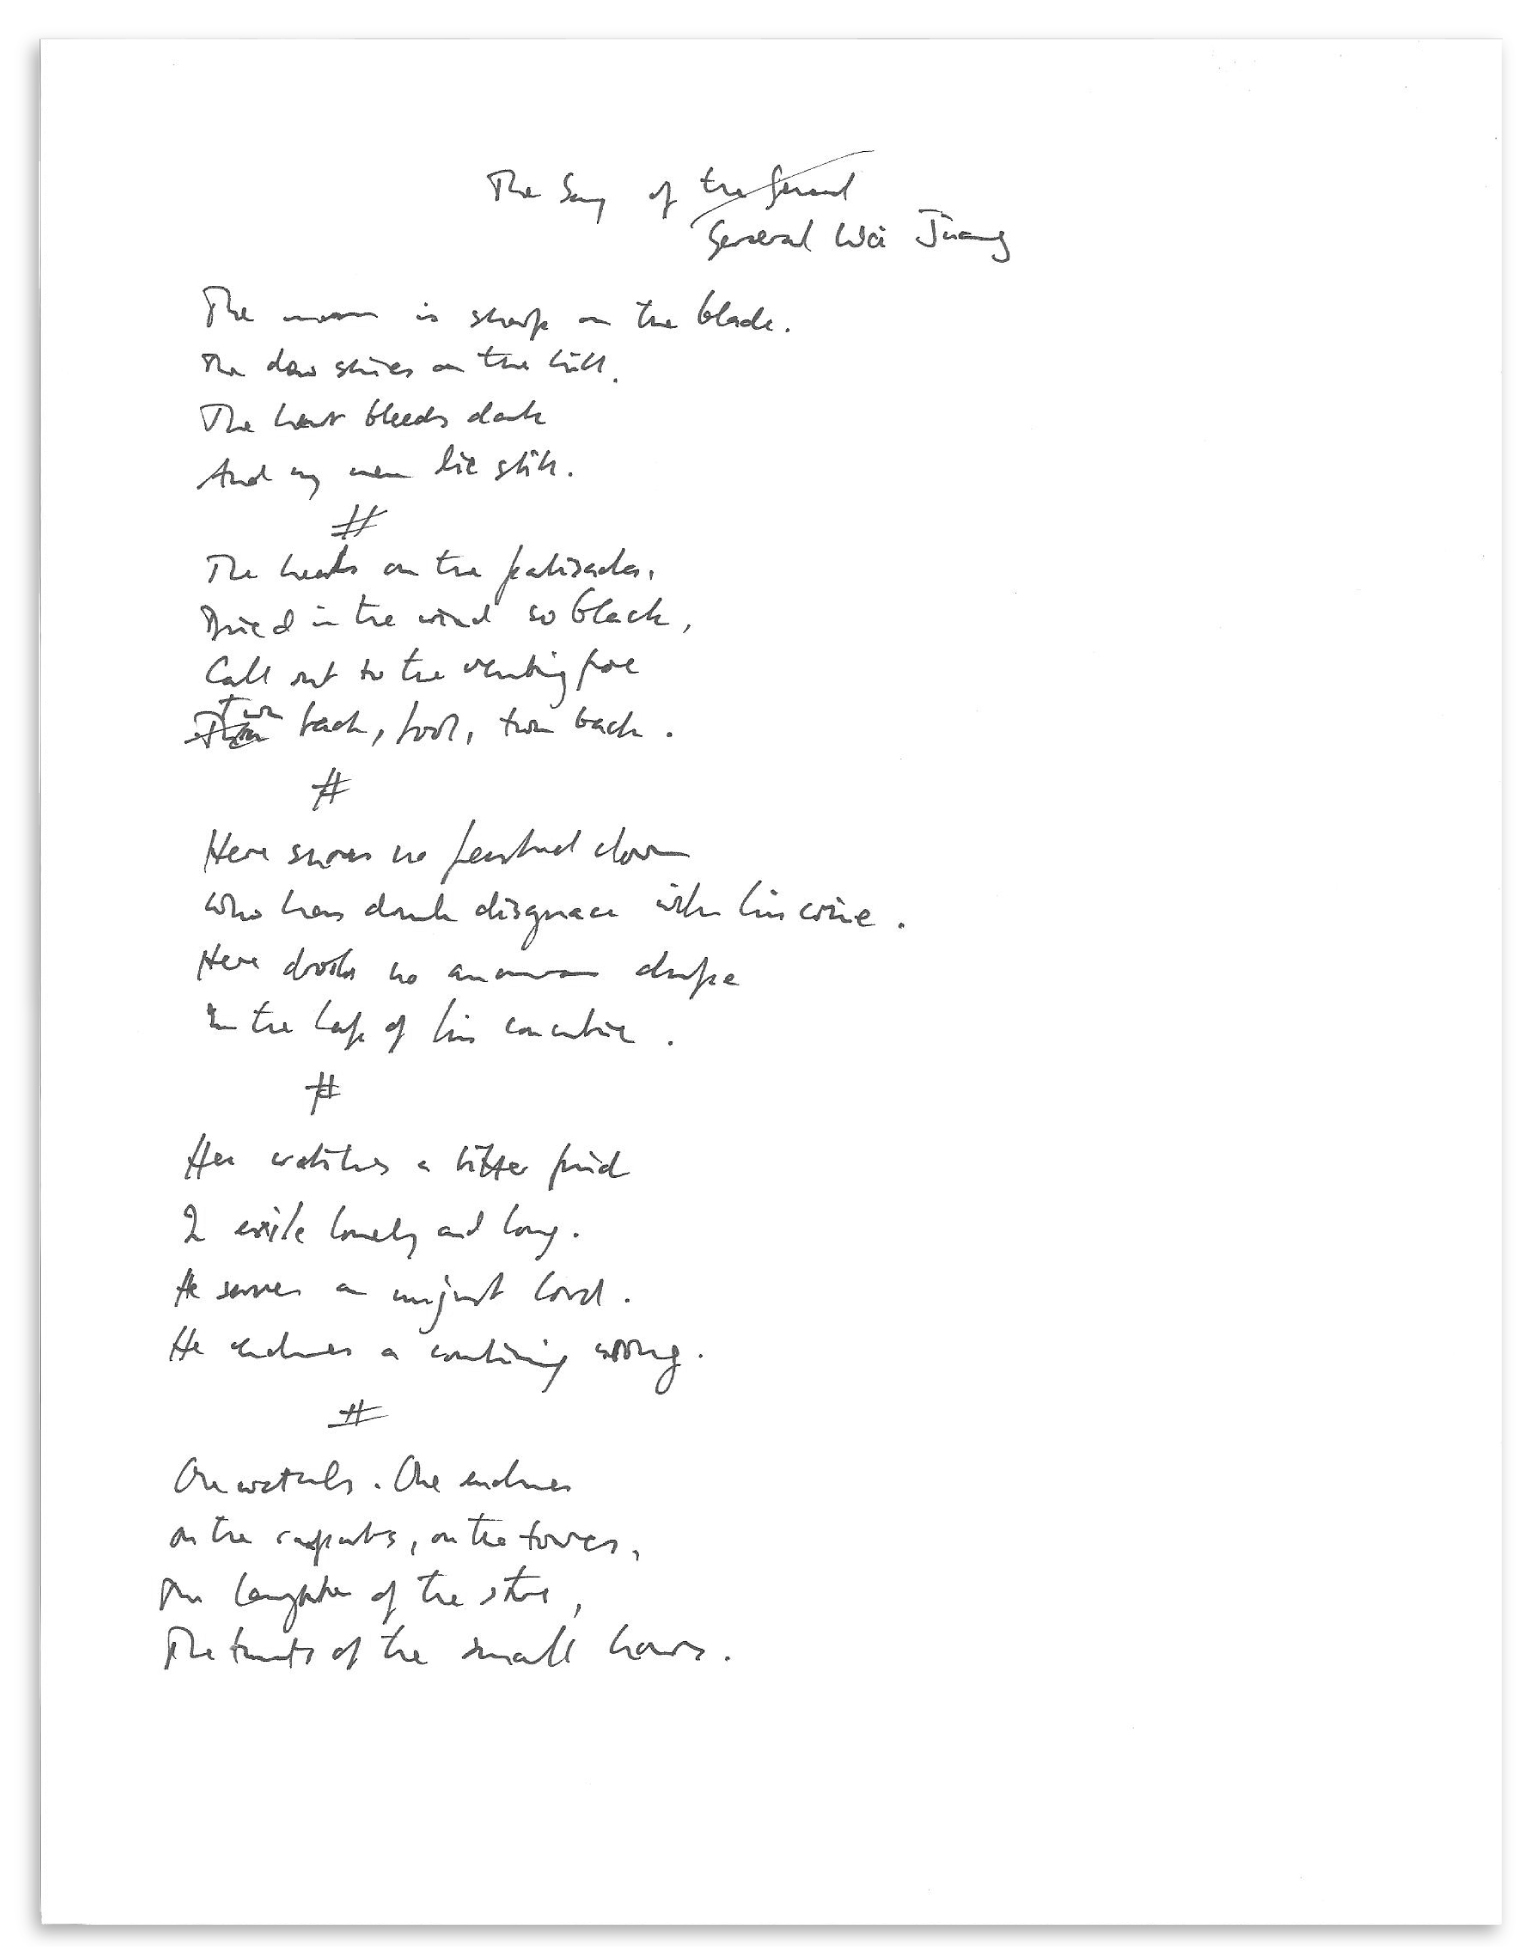 The Song of the General
General Wei Juang
The moon is sharp on the blade.
The dew shines on the hill.
The heart bleeds dark
And my men lie still.
#
The heads on the palisades,
Dried in the wind so black,
Call out to the venturing foe
Turn back, fool, turn back.
#
Here snores no perfumed clown
Who has drunk disgrace with his wine.
Here drools no amorous dupe
In the lap of his concubine.
#
Here watches a bitter friend
In exile lonely and long.
He serves an unjust lord.
He endures a continuing wrong.
#
One watches. One endures
on the ramparts, on the towers,
The laughter of the stars,
The taunts of the small hours.